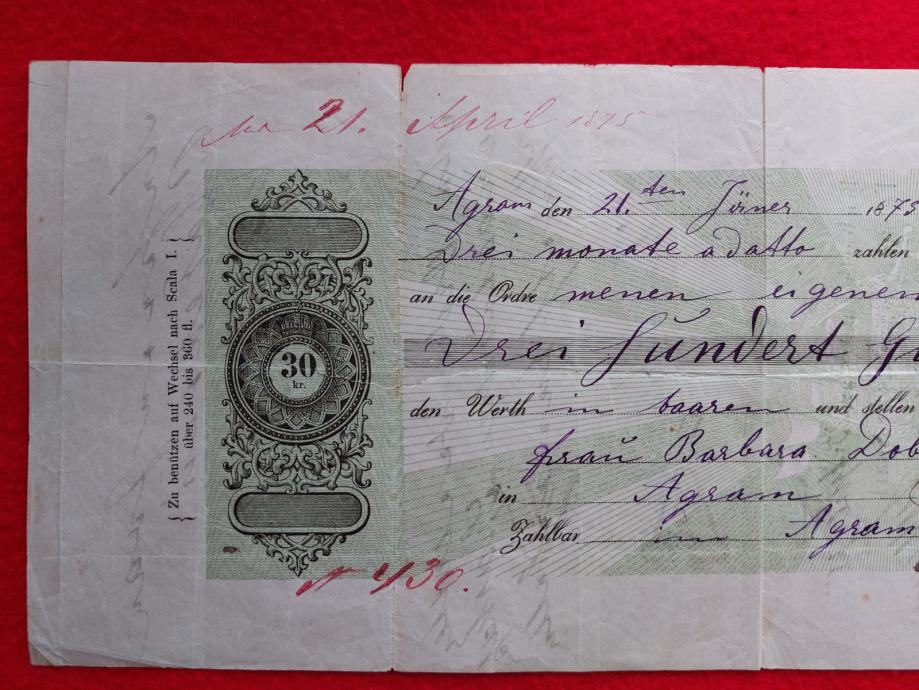 21. April 1875
Agram den 21.ten Jäner 187
Drei monate a datto zahlen
an die Ordre meinen eigenen
Drei Hundert Gu
den Werth in baaren und stellen
frau Barbara Dob
in Agram
Zahlbar in Agram
30
kr.
Zu benützen auf Wechsel nach Scala I.
über 240 bis 360 fl.
430.